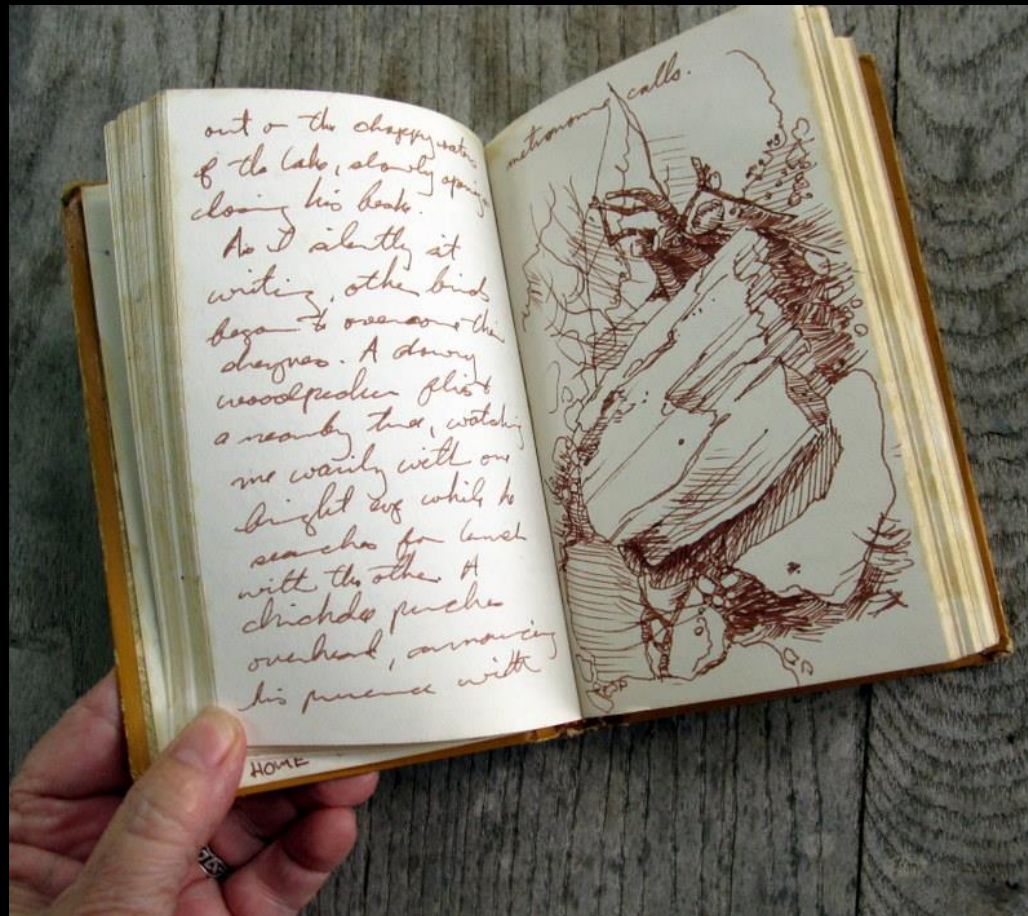 out on the choppy waters
of the lake, slowly opening
closing his beak.
As I silently sit
writing, other birds
began to overcome their
shyness. A downy
woodpecker flies to
a nearby tree, watching
me warily with one
bright eye while he
searches for lunch
with the other. A
chickadee perches
overhead, announcing
his presence with
HOME
metronome calls.